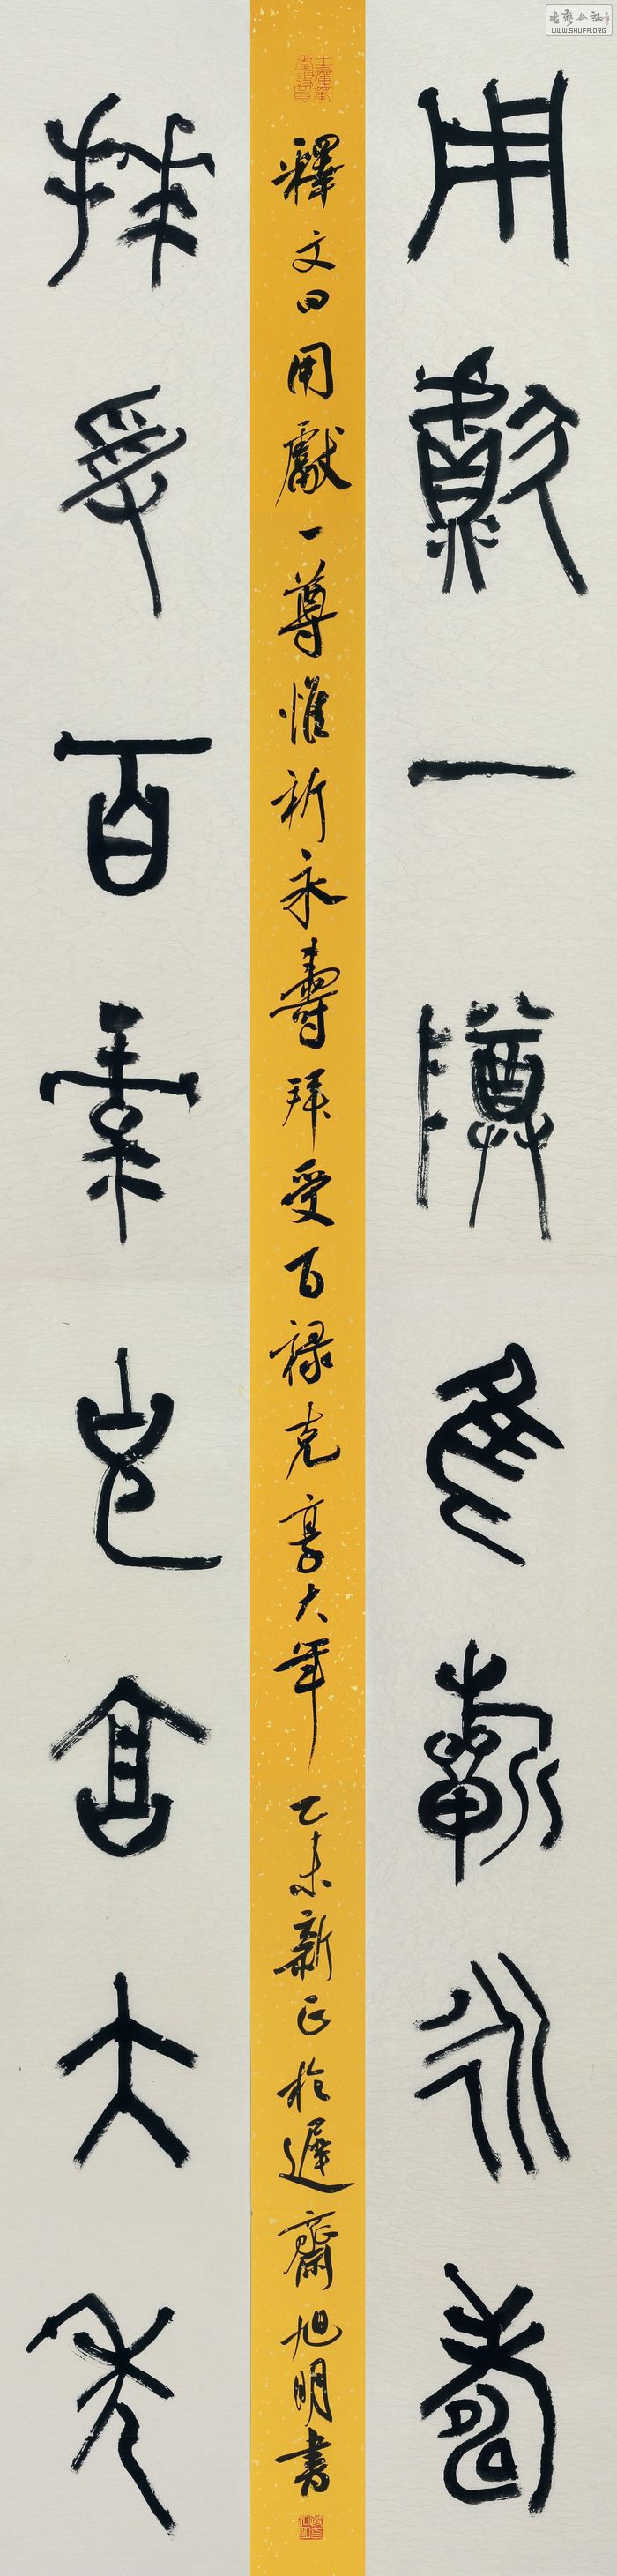 用獻一尊隹祈永壽
拜受百彔克亯大年
釋文曰用獻一尊惟祈永壽拜受百祿克享大年乙未新正於遲齋旭明書
WWW.SHUFA.ORG